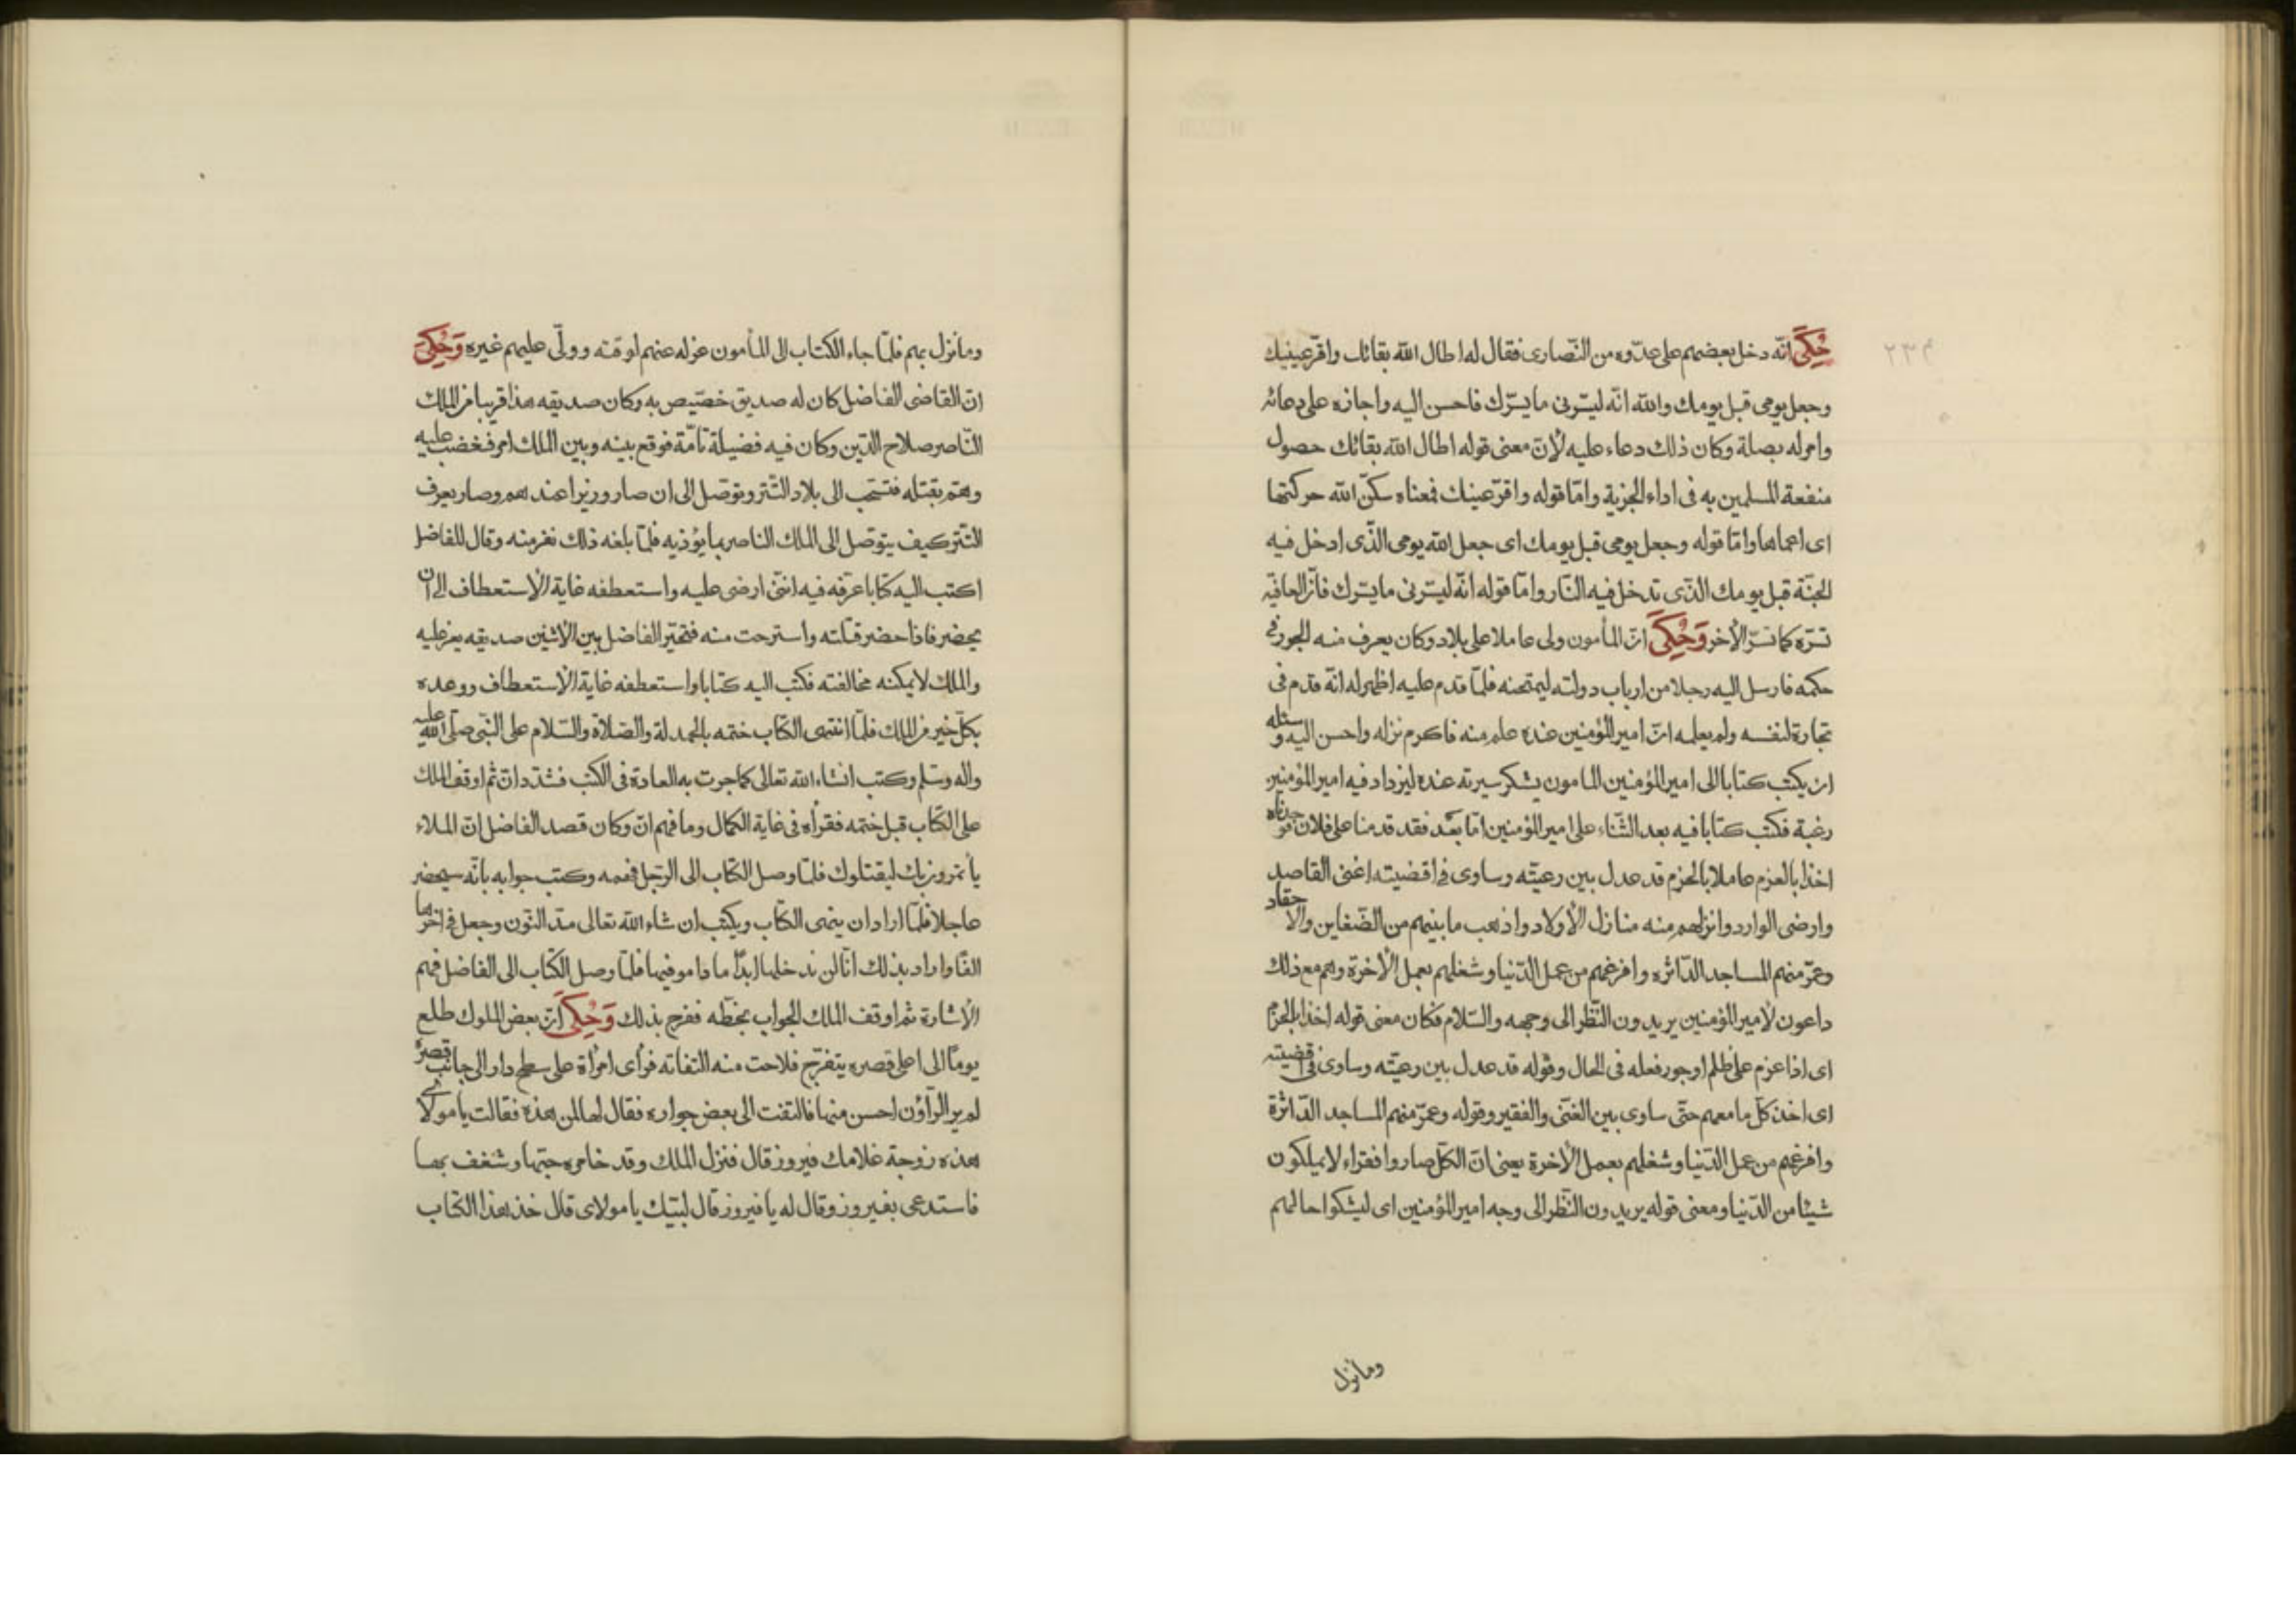 ٢٣٤
حُكِيَ انّه دخل بعضهم على عدّوه من النّصارى فقال له اطال الله بقائك واقرّ عينيك
وجعل يومى قبل يومك والله انّه ليسّرنى ما يسرّك فاحسن اليه واجازه على دعائه
وامر له بصلة وكان ذلك دعاء عليه لأنّ معنى قوله اطال الله بقائك حصول
منفعة المسلمين به فى اداء الجزية وامّا قوله واقرّ عينك فمعناه سكّن الله حركتها
اى اعماها وامّا قوله وجعل يومى قبل يومك اى جعل الله يومى الذّى ادخل فيه
الجنّة قبل يومك الذّى تدخل فيه النّار وامّا قوله انّه ليسّرنى ما يسّرك فانّ العافية
تسّره كما تسّر الأخر وَحُكِيَ انّ المأمون ولى عاملا على بلاد وكان يعرف منه الجور فى
حكمه فارسل اليه رجلا من ارباب دولته ليمتحنه فلمّا قدم عليه اظهر له انّه قدم فى
تجارة لنفسه ولم يعلمه انّ امير المؤمنين عنده علم منه فاكرم نزله واحسن اليه وسئله
ان يكتب كتابا الى امير المؤمنين المامون يشكر سيرته عنده ليزداد فيه امير المؤمنين
رغبة فكتب كتابا فيه بعد الثّناء على امير المؤمنين امّا بعد فقد قدمنا على فلان فوجدناه
اخذا بالعزم عاملا بالحزم قد عدل بين رعيّته وساوى فى اقضيته اغنى القاصد
وارضى الوارد وانزلهم منه منازل الأولاد واذهب ما بينهم من الضّغاين والاحقاد
وعمّر منهم المساجد الدّاثره وافرغهم من عمل الدّنيا وشغلهم بعمل الأخرة وهم مع ذلك
داعون لأمير المؤمنين يريدون النّظر الى وجهه والسّلام فكان معنى قوله اخذا بالحزم
اى اذا عزم على ظلم او جور فعله فى الحال وقوله قد عدل بين رعيّته وساوى فى اقضيته
اى اخذ كلّ ما معهم حتّى ساوى بين الغنّى والفقير وقوله وعمّر منهم المساجد الدّاثرة
وافرغهم من عمل الدّنيا وشغلهم بعمل الأخرة يعنى انّ الكلّ صاروا فقراء لا يملكون
شيئا من الدّنيا ومعنى قوله يريدون النّظر الى وجه امير المؤمنين اى ليشكوا حالهم
وما نزل
وما نزل بهم فلمّا جاء الكتاب الى المأمون عزله عنهم لوقته وولّى عليهم غيره وَحُكِيَ
انّ القاضى الفاضل كان له صديق خصّيص به وكان صديقه هذا قريبا من الملك
النّاصر صلاح الدّين وكان فيه فضيلة تامّة فوقع بينه وبين الملك امر فغضب عليه
وهمّ بقتله فتسّحب الى بلاد التّتر وتوصّل الى ان صار وزيرا عندهم وصار يعرف
التّتر كيف يتوصّل الى الملك الناصر بما يؤذيه فلمّا بلغه ذلك نفر منه وقال للفاضل
اكتب اليه كتابا عرّفه فيه انّنى ارضى عليه واستعطفه غاية الأستعطاف الى ان
يحضر فاذا حضر قتلته واسترحت منه فتحيّر الفاضل بين الأثنين صديقه يعز عليه
والملك لا يمكنه مخالفته فكتب اليه كتابا واستعطفه غاية الأستعطاف ووعده
بكلّ خير من الملك فلمّا انتهى الكتاب ختمه بالحمدلة والصّلاة والسّلام على النّبى صلّى الله عليه
واله وسلّم وكتب انشاء الله تعالى كما جرت به العادة فى الكتب فشدّد انّ ثم اوقف الملك
على الكتاب قبل ختمه فقرأه فى غاية الكمال وما فهم انّ وكان قصد الفاضل انّ الملاء
يأتمرون بك ليقتلوك فلمّا وصل الكتاب الى الرّجل فهمه وكتب جوابه بانّه سيحضر
عاجلا فلمّا اراد ان ينهى الكتاب ويكتب ان شاء الله تعالى مدّ النّون وجعل فى اخرها
الفًا واراد بذلك انّا لن ندخلها ابدًا ما داموا فيها فلمّا وصل الكتاب الى الفاضل فهم
الأشارة ثم اوقف الملك الجواب بخطّه ففرح بذلك وَحُكِيَ انّ بعض الملوك طلع
يومًا الى اعلى قصره يتفرّج فلاحت منه التفاته فرأى امرأة على سطح دار الى جانب قصره
لم ير الرّاؤن احسن منها فالتفت الى بعض جواره فقال لها لمن هذه فقالت يا مولاى
هذه زوجة غلامك فيروز قال فنزل الملك وقد خامره حبّها وشغف بها
فاستدعى بفيروز وقال له يا فيروز قال لبّيك يا مولاى قال خذ هذا الكتاب